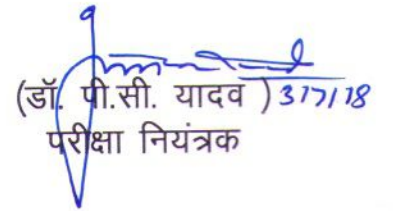 (डॉ. पी.सी. यादव ) 317118
परीक्षा नियंत्रक